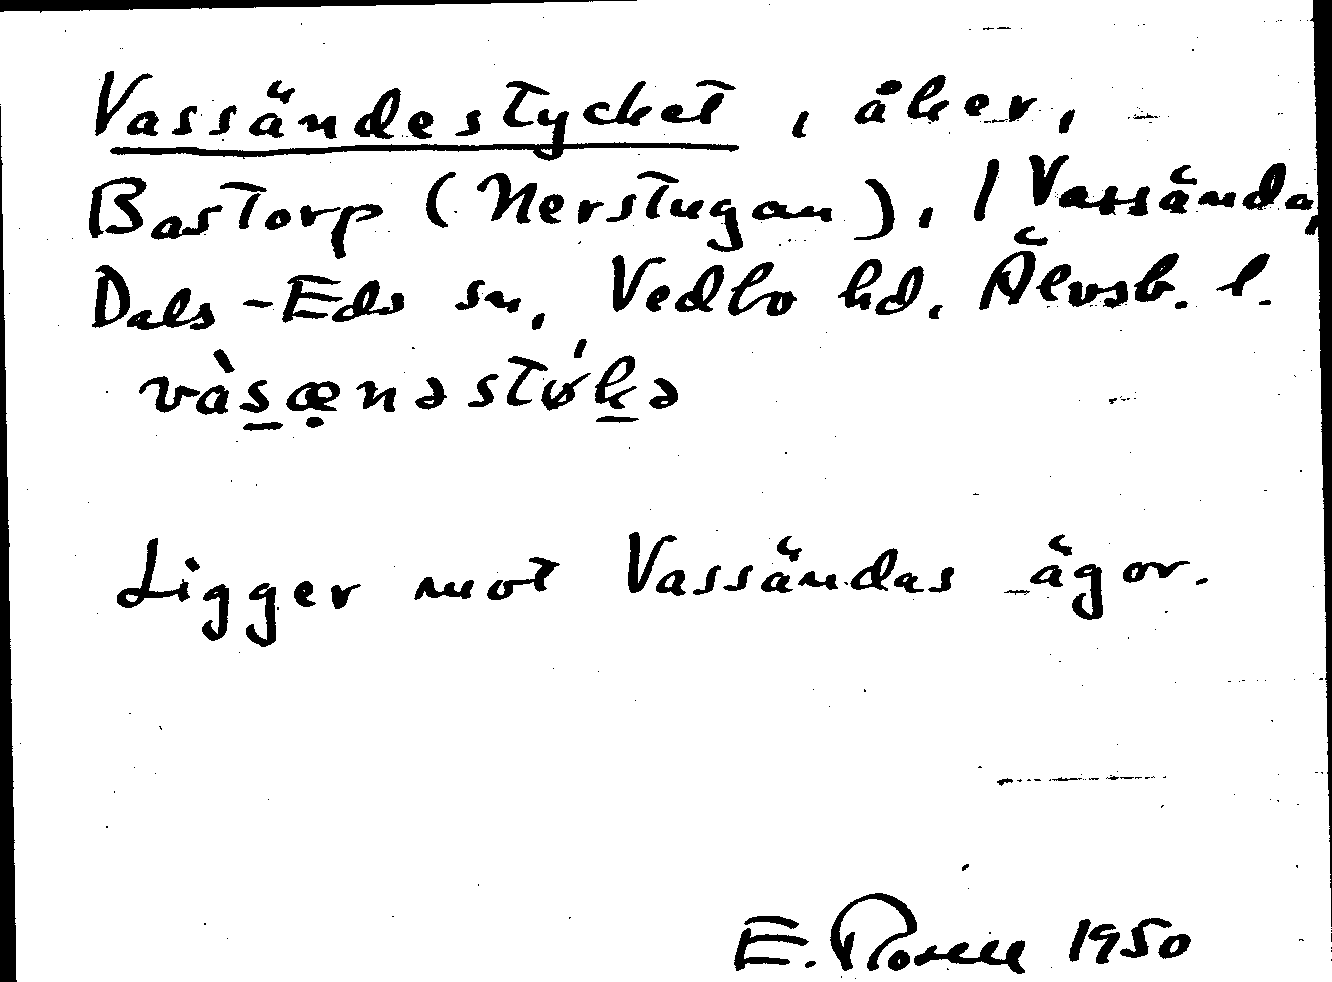 Vassändestycket, åker,
Bastorp (Nerstugan), / Vassända,
Dals-Eds sn, Vedbo hd. Älvsb. l.
vàs̲æ̣nəstǿk̲ə
Ligger mot Vassändas ägor.
E. Rosell 1950